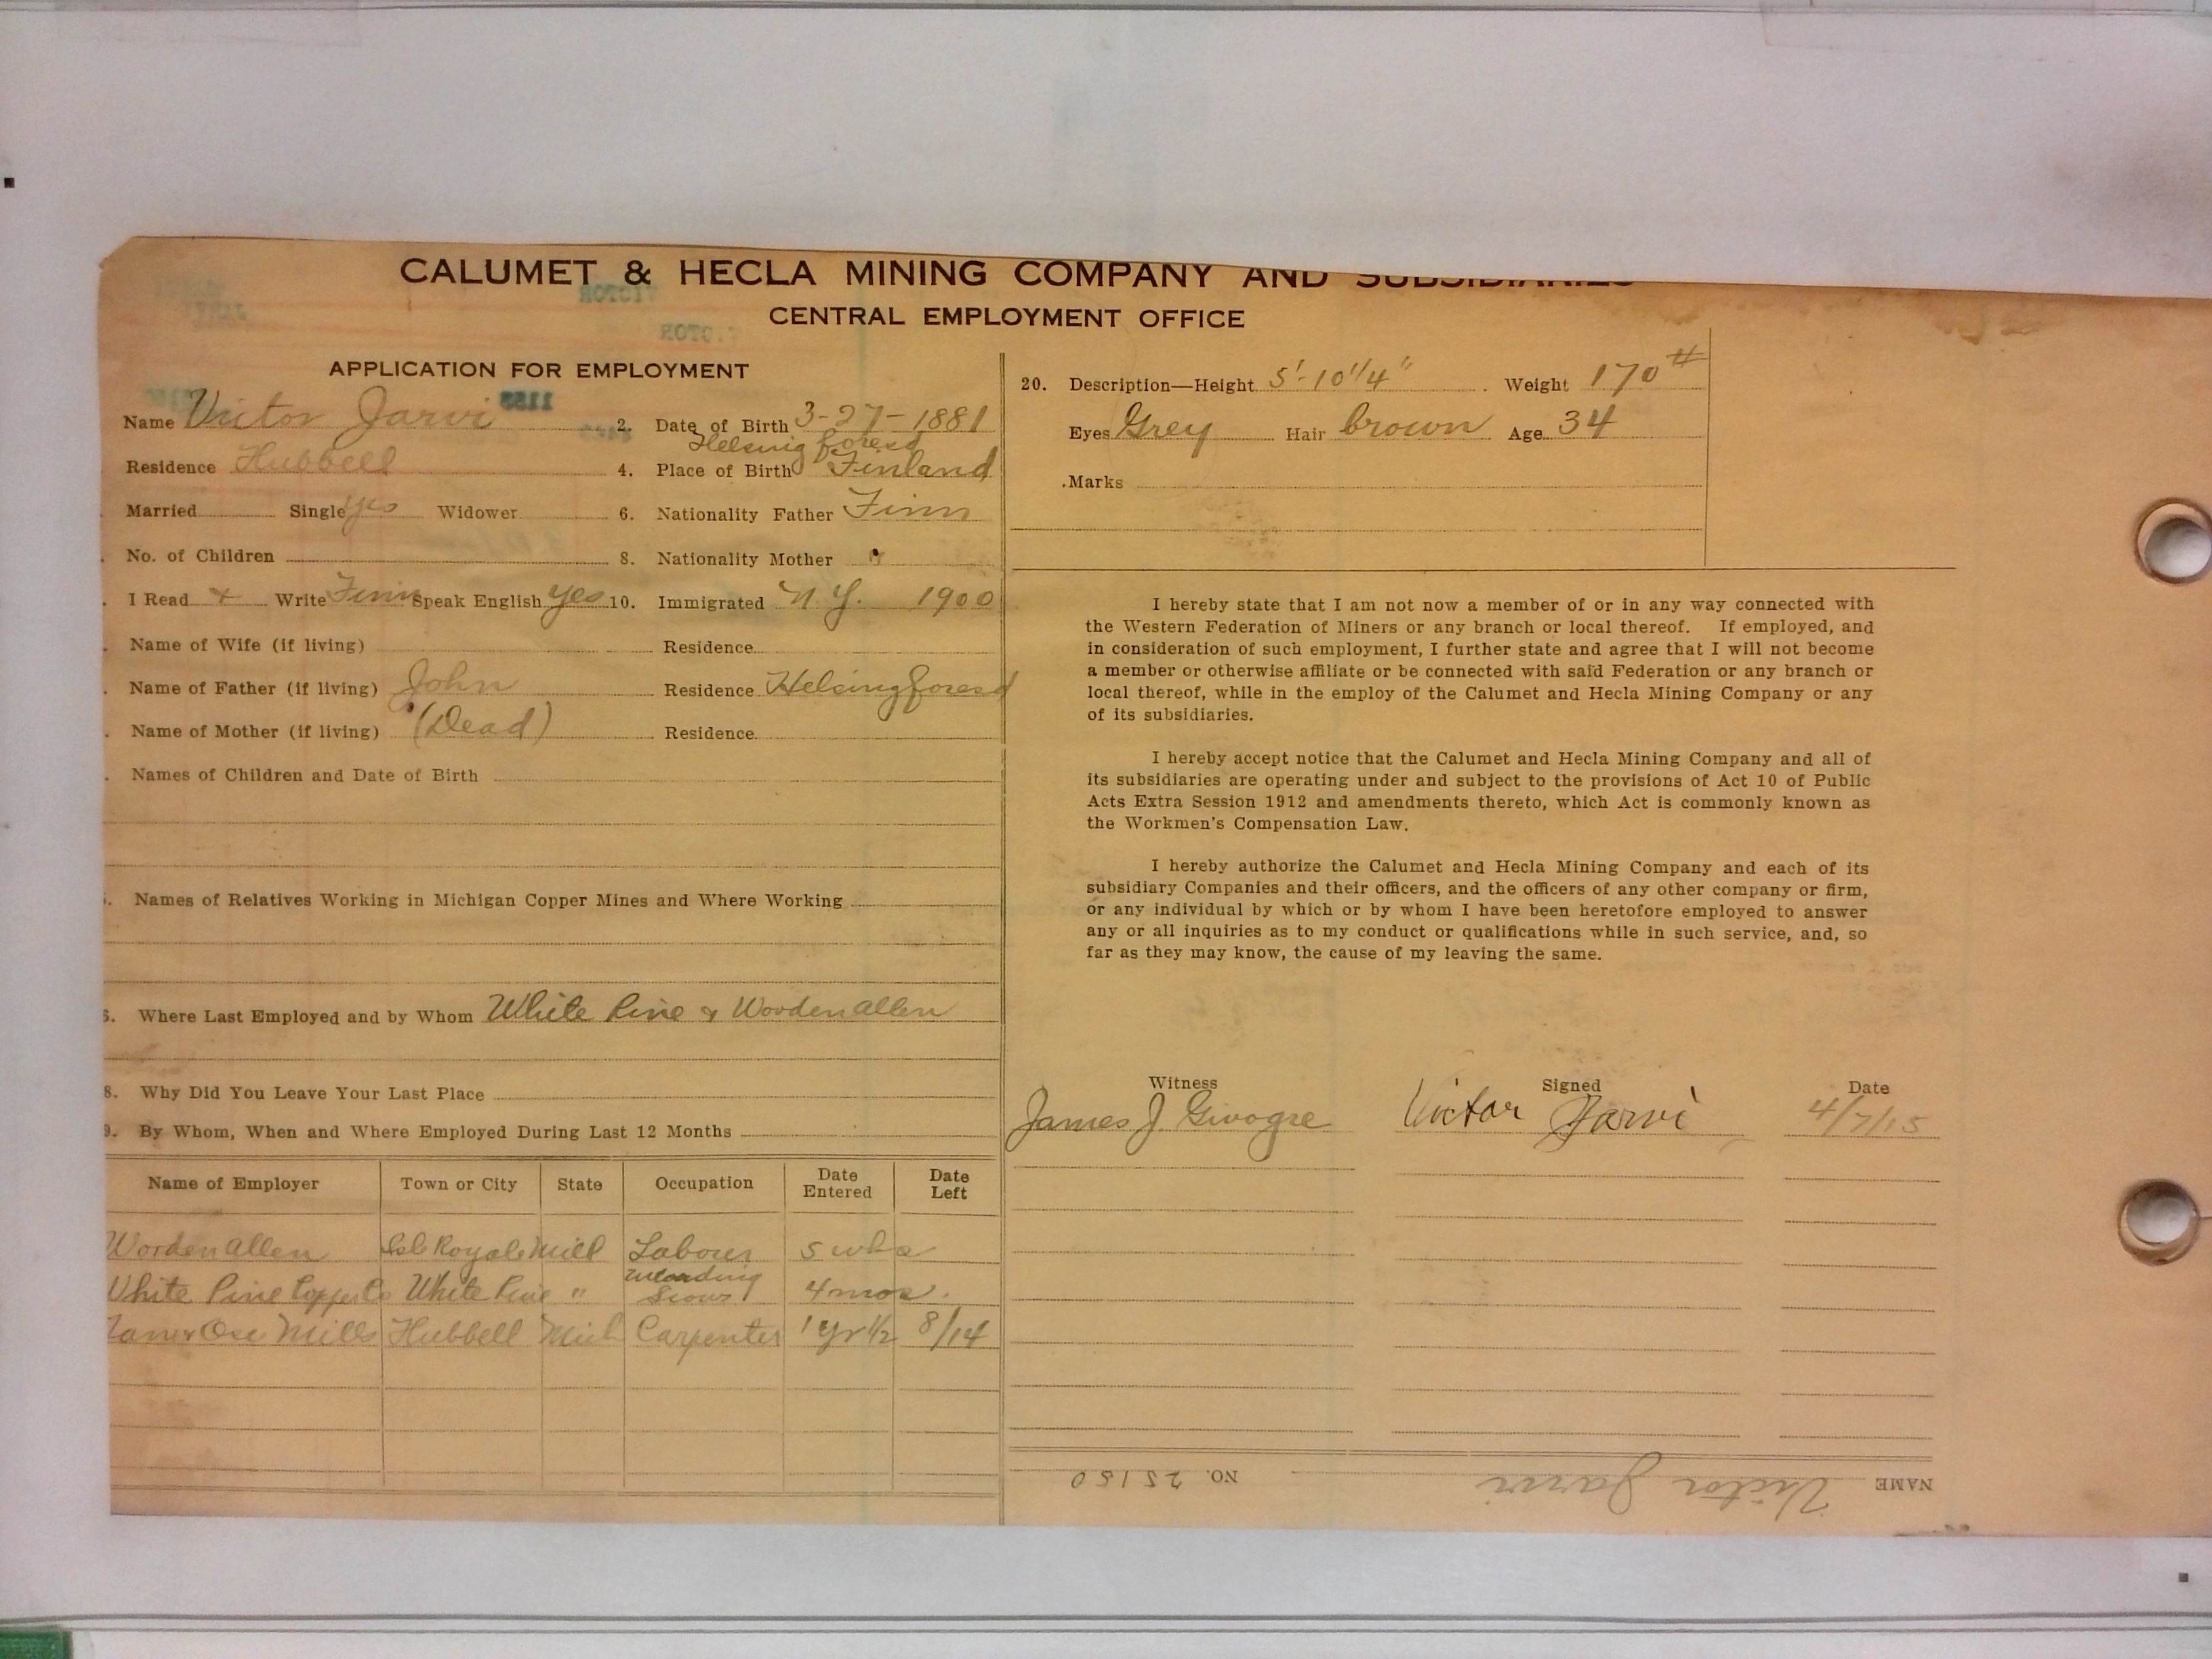 CALUMET & HECLA MINING COMPANY AND SUBSIDIARIES
CENTRAL EMPLOYMENT OFFICE
APPLICATION FOR EMPLOYMENT
Name Victor Jarvi 2. Date of Birth 3-27-1881
Residence Hubbell 4. Place of Birth Helsingforesd Finland
Married Single yes Widower 6. Nationality Father Finn
No. of Children 8. Nationality Mother "
I Read + Write Finn Speak English yes 10. Immigrated N.Y. 1900
Name of Wife (if living) Residence
Name of Father (if living) John Residence Helsingforesd
Name of Mother (if living) (Dead) Residence
Names of Children and Date of Birth
Names of Relatives Working in Michigan Copper Mines and Where Working
6. Where Last Employed and by Whom White Pine & Worden Allen
8. Why Did You Leave Your Last Place
9. By Whom, When and Where Employed During Last 12 Months
Name of Employer Town or City State Occupation Date Entered Date Left
Worden Allen Isle Royale Mill Laborer 5 wks
White Pine Copper Co White Pine " 4 mos.
Mills Hubbell Mich Carpenter 1 yr 1/2 8/14
20. Description—Height 5'-10 1/4" Weight 170 #
Eyes Grey Hair brown Age 34
Marks
I hereby state that I am not now a member of or in any way connected with
the Western Federation of Miners or any branch or local thereof. If employed, and
in consideration of such employment, I further state and agree that I will not become
a member or otherwise affiliate or be connected with said Federation or any branch or
local thereof, while in the employ of the Calumet and Hecla Mining Company or any
of its subsidiaries.
I hereby accept notice that the Calumet and Hecla Mining Company and all of
its subsidiaries are operating under and subject to the provisions of Act 10 of Public
Acts Extra Session 1912 and amendments thereto, which Act is commonly known as
the Workmen's Compensation Law.
I hereby authorize the Calumet and Hecla Mining Company and each of its
subsidiary Companies and their officers, and the officers of any other company or firm,
or any individual by which or by whom I have been heretofore employed to answer
any or all inquiries as to my conduct or qualifications while in such service, and, so
far as they may know, the cause of my leaving the same.
Witness Signed Date
James J. Givogre Victor Jarvi 4/7/15
NAME Victor Jarvi NO. 25180